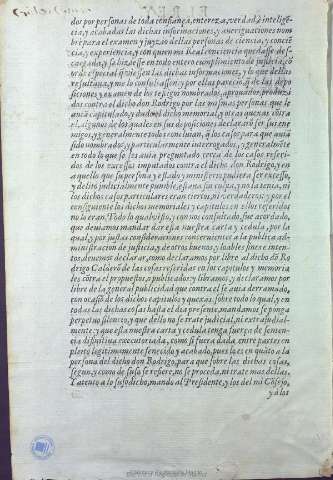 dos por personas de toda confiança, entereza, verdad, è inteligẽ
cia, y acabadas las dichas informaciones, y aueriguaciones nom
brè para el examen y juyzio dellas personas de ciencia, y conciẽ
cia, y experiencia, y con quien mi Real conciencia quedasse des
cargada, y se hiziesse en todo entero cumplimiento de justicia, cõ
orden especial que viessen las dichas informaciones, y lo que dellas
resultaua, y me lo consultassen, y por ellas pareciò, que las depo
siciones, y examen de los testigos nombrados, aprouados, produzi
dos contra el dicho don Rodrigo por las mismas personas que le
auiã capitulado, y dado el dicho memorial, y otras quexas cõtra
el, algunos de los quales en sus deposiciones declararõ ser sus ene
migos, y generalmente todos concluian, que los casos para que auiã
sido nombrados, y particularmente interrogados, y generalmẽte
en todo lo que se les auia preguntado cerca de los casos referi-
dos de los excessos imputados contra el dicho don Rodrigo, y en
aquello que su persona y estado, y ministerio pudiera ser excesso,
y delito judicialmente punible, estaua sin culpa, y no la tenia, ni
los dichos casos particulares eran ciertos, ni verdaderos: y por el
consiguiente los dichos memoriales, y capitulos en ellos referidos
no lo eran. Todo lo qual visto, y con nos consultado, fue acordado,
que deuiamos mandar dar esta nuestra carta y cedula, por la
qual, y por justas consideraciones concernientes a la publica ad-
ministracion de justicia, y a otros buenos, y loables fines e inten-
tos, deuemos declarar, como declaramos por libre al dicho dõ Ro
drigo Calderõ de las cosas referidas en los capitulos y memoria
les cõtra el propuestos, o publicados: y libramos, y declaramos por
libre de la general publicidad que contra el se auia derramado,
con ocasiõ de los dichos capitulos y quexas. Sobre todo lo qual, y en
todas las dichas cosas hasta el dia presente, mandamos se ponga
perpetuo silencio, y que dello no se trate judicial, ni extrajudicial-
mente, y que esta nuestra carta y cedula tenga fuerça de senten-
cia difinitiua executoriada, como si fuera dada entre partes en
pleyto legitimamente fenecido y acabado, pues lo es en quãto a la
persona del dicho don Rodrigo, para que sobre las dichas cosas,
segun, y como de suso se refiere, no se proceda, ni trate mas dellas.
Y atento a lo susodicho, mando al Presidente, y los del mi Cõsejo,
y a los